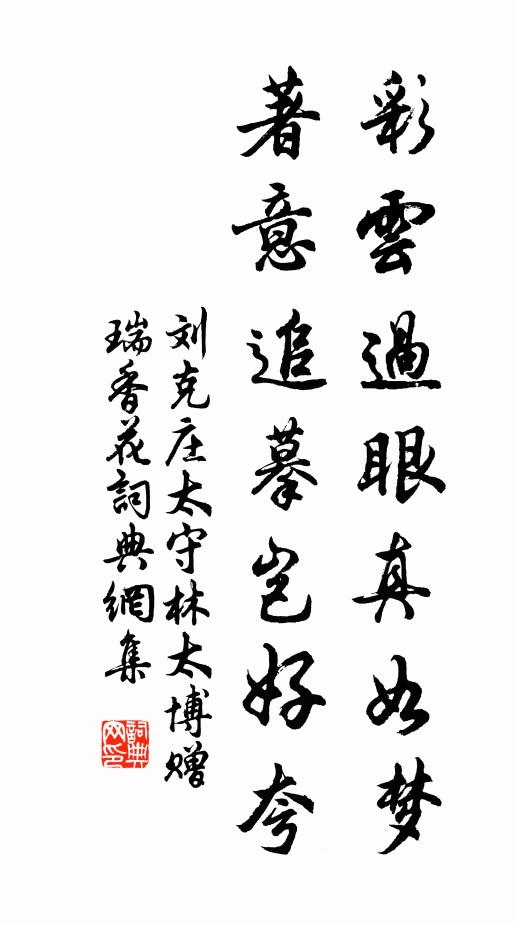 彩雲過眼真如梦
著意追摹岂好夸
刘克庄太守林太博赠
瑞香花詞典網集
詞典
网印